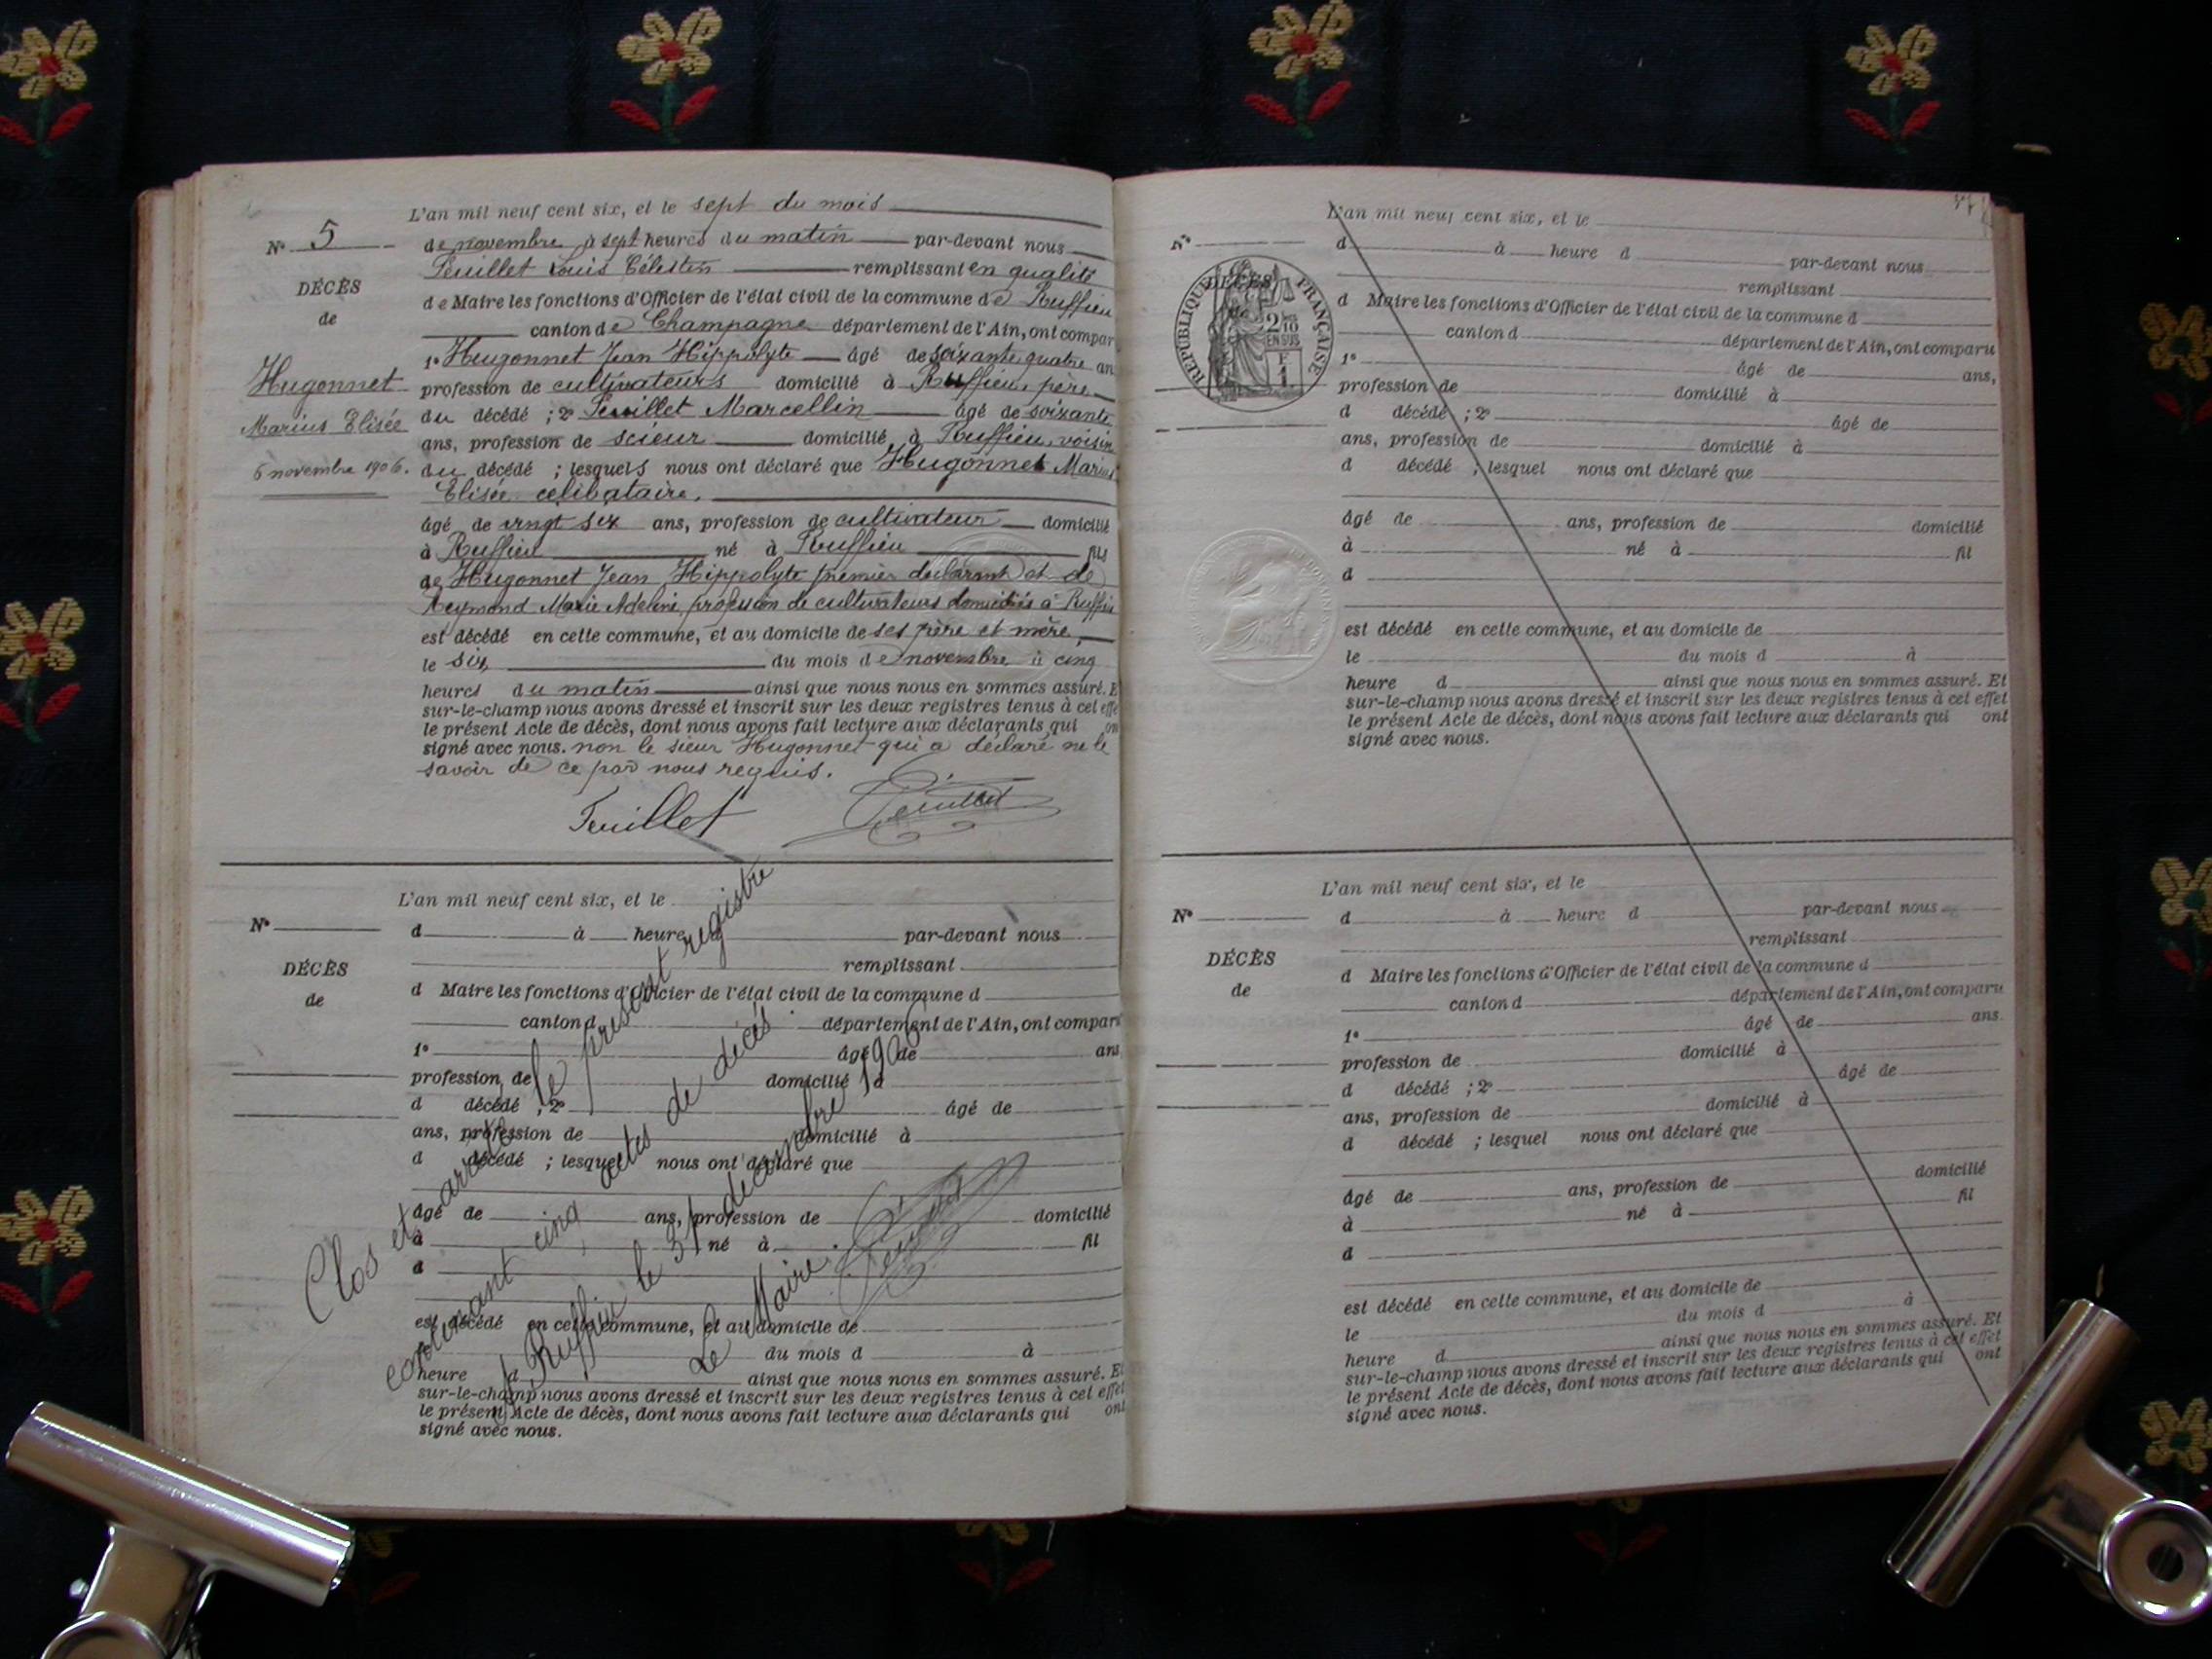 L'an mil neuf cent six, et le sept du mois
N° 5
de novembre à sept heures du matin par-devant nous
Feuillet Louis Célestin remplissant en qualité
DÉCÈS
de Maire les fonctions d'Officier de l'état civil de la commune de Ruffieu
de
canton de Champagne département de l'Ain, ont compar
1° Hugonnet Jean Hippolyte âgé de soixante quatre an
Hugonnet
profession de cultivateurs domicilié à Ruffieu, père
Marius Elisée
du décédé ; 2° Feuillet Marcellin âgé de soixante
ans, profession de scieur domicilié à Ruffieu, voisin
6 novembre 1906.
du décédé ; lesquels nous ont déclaré que Hugonnet Marius
Elisée célibataire.
âgé de vingt six ans, profession de cultivateur domicilié
à Ruffieu né à Ruffieu fils
de Hugonnet Jean Hippolyte premier déclarant et de
Reymond Marie Adeline, profession de cultivateurs domiciliés à Ruffieu
est décédé en cette commune, et au domicile de ses père et mère,
le six, du mois de novembre à cinq
heures du matin ainsi que nous nous en sommes assuré. E
sur-le-champ nous avons dressé et inscrit sur les deux registres tenus à cet effe
le présent Acte de décès, dont nous avons fait lecture aux déclarants qui on
signé avec nous. non le sieur Hugonnet qui a déclaré ne le
savoir de ce par nous requis.
Feuillet
Feuillet
L'an mil neuf cent six, et le
N°
d à heure d par-devant nous
remplissant
DÉCÈS
d Maire les fonctions d'Officier de l'état civil de la commune d
de
canton d département de l'Ain, ont comparu
1° âgé de ans
profession de domicilié à
d décédé ; 2° âgé de
ans, profession de domicilié à
d décédé ; lesquel nous ont déclaré que
âgé de ans, profession de domicilié
à né à fil
d
est décédé en cette commune, et au domicile de
du mois d à
heure d ainsi que nous nous en sommes assuré. Et
sur-le-champ nous avons dressé et inscrit sur les deux registres tenus à cet effet
le présent Acte de décès, dont nous avons fait lecture aux déclarants qui ont
signé avec nous.
Clos et arrêté le présent registre
contenant cinq actes de décès.
à Ruffieu le 31 décembre 1906
Le Maire.
Feuillet
L'an mil neuf cent six, et le
N°
d à heure d par-devant nous
remplissant
DÉCÈS
RÉPUBLIQUE FRANÇAISE
2/10 EN SUS
F
1
d Maire les fonctions d'Officier de l'état civil de la commune d
canton d département de l'Ain, ont comparu
1° âgé de ans,
profession de domicilié à
d décédé ; 2° âgé de
ans, profession de domicilié à
d décédé ; lesquel nous ont déclaré que
âgé de ans, profession de domicilié
à né à fil
d
est décédé en cette commune, et au domicile de
le du mois d à
heure d ainsi que nous nous en sommes assuré. Et
sur-le-champ nous avons dressé et inscrit sur les deux registres tenus à cet effet
le présent Acte de décès, dont nous avons fait lecture aux déclarants qui ont
signé avec nous.
L'an mil neuf cent six, et le
N°
d à heure d par-devant nous
remplissant
DÉCÈS
d Maire les fonctions d'Officier de l'état civil de la commune d
de
canton d département de l'Ain, ont comparu
1° âgé de ans.
profession de domicilié à
d décédé ; 2° âgé de
ans, profession de domicilié à
d décédé ; lesquel nous ont déclaré que
âgé de ans, profession de domicilié
à né à fil
d
est décédé en cette commune, et au domicile de
le du mois d à
heure d ainsi que nous nous en sommes assuré. Et
sur-le-champ nous avons dressé et inscrit sur les deux registres tenus à cet effet
le présent Acte de décès, dont nous avons fait lecture aux déclarants qui ont
signé avec nous.